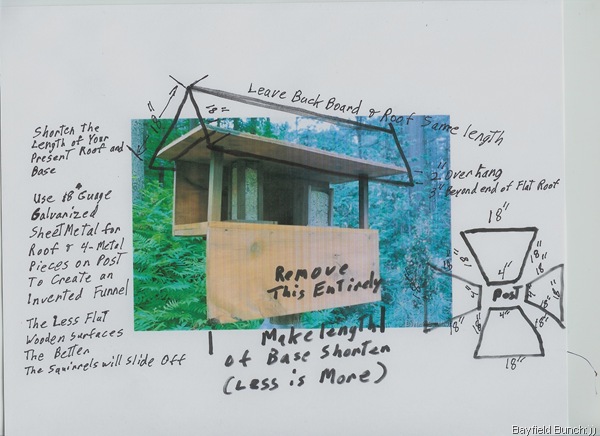 Leave Back Board & Roof Same length
18"
18"
Shorten the
Length of Your
Present Roof and
Base
Use 18 Guage
Galvanized
Sheet Metal for
Roof & 4-Metal
Pieces on Post
To Create an
Inverted Funnel
The Less Flat
Wooden Surfaces
The Better
The Squirrels will Slide Off
2" Overhang
Beyond end of Flat Roof
Remove
This Entirely
Make length
of Base Shorten
(Less is More)
18"
18"
18"
18"
18"
4"
4"
Post
4"
4"
18"
18"
18"
18"
18"
Bayfield Bunch:))